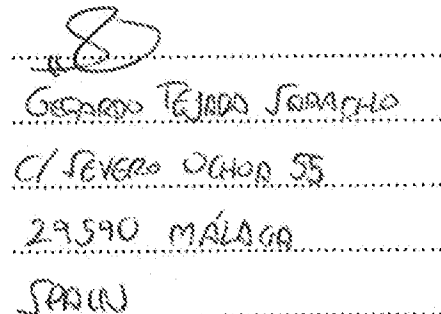 GERARDO TEJADA SARACHO
C/ SEVERO OCHOA 55
29590 MÁLAGA
SPAIN